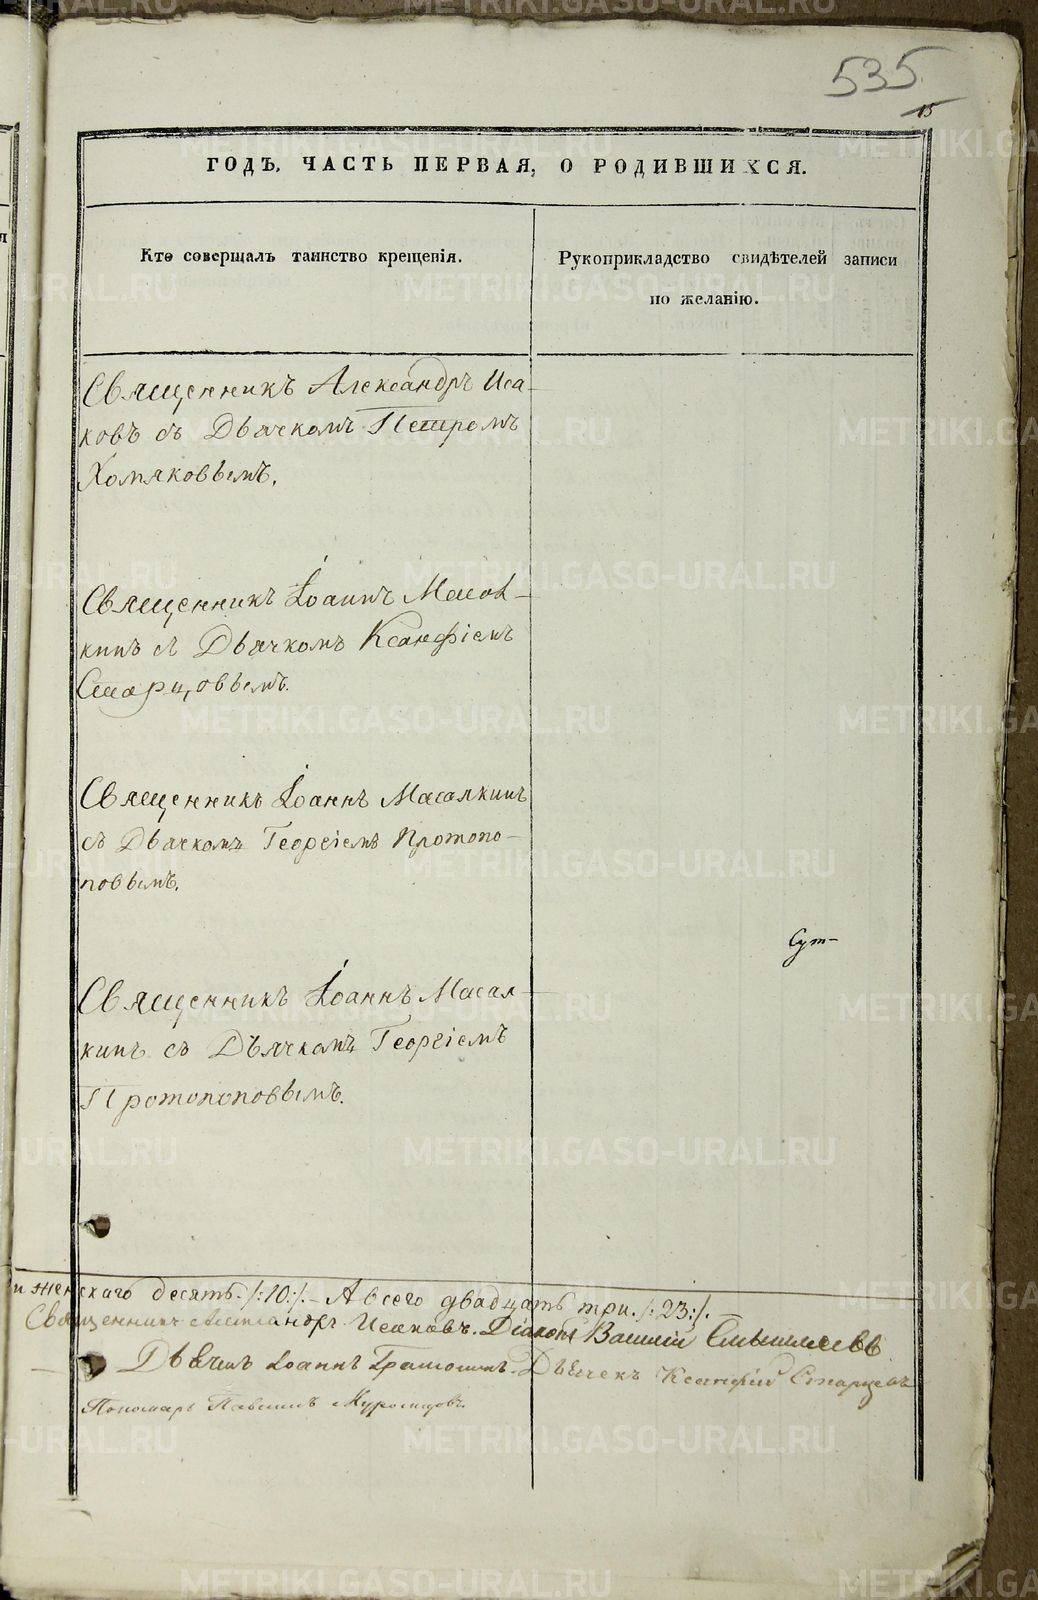 535
15
ГОДЪ. ЧАСТЬ ПЕРВАЯ, О РОДИВШИХСЯ.
Кто совершалъ таинство крещенія.
Рукоприкладство свидѣтелей записи
по желанію.
Священникъ Александръ Иса-
ковъ съ Дьячкомъ Петромъ
Хомяковымъ.
Священникъ Іоаннъ Масал-
кинъ съ Дьячкомъ Ксанфіемъ
Старцовымъ.
Священникъ Іоаннъ Масалкинъ
съ Дьячкомъ Георгіемъ Протопо-
повымъ.
Сут-
Священникъ Іоаннъ Масал-
кинъ съ Дьячкомъ Георгіемъ
Протопоповымъ.
и женскаго десять /:10:/. - А всего двадцать три. /:23:/.
Священникъ Александръ Исаковъ. Діаконъ
Іоаннъ Дьячекъ Ксанфій Старцовъ
Пономарь
METRIKI.GASO-URAL.RU